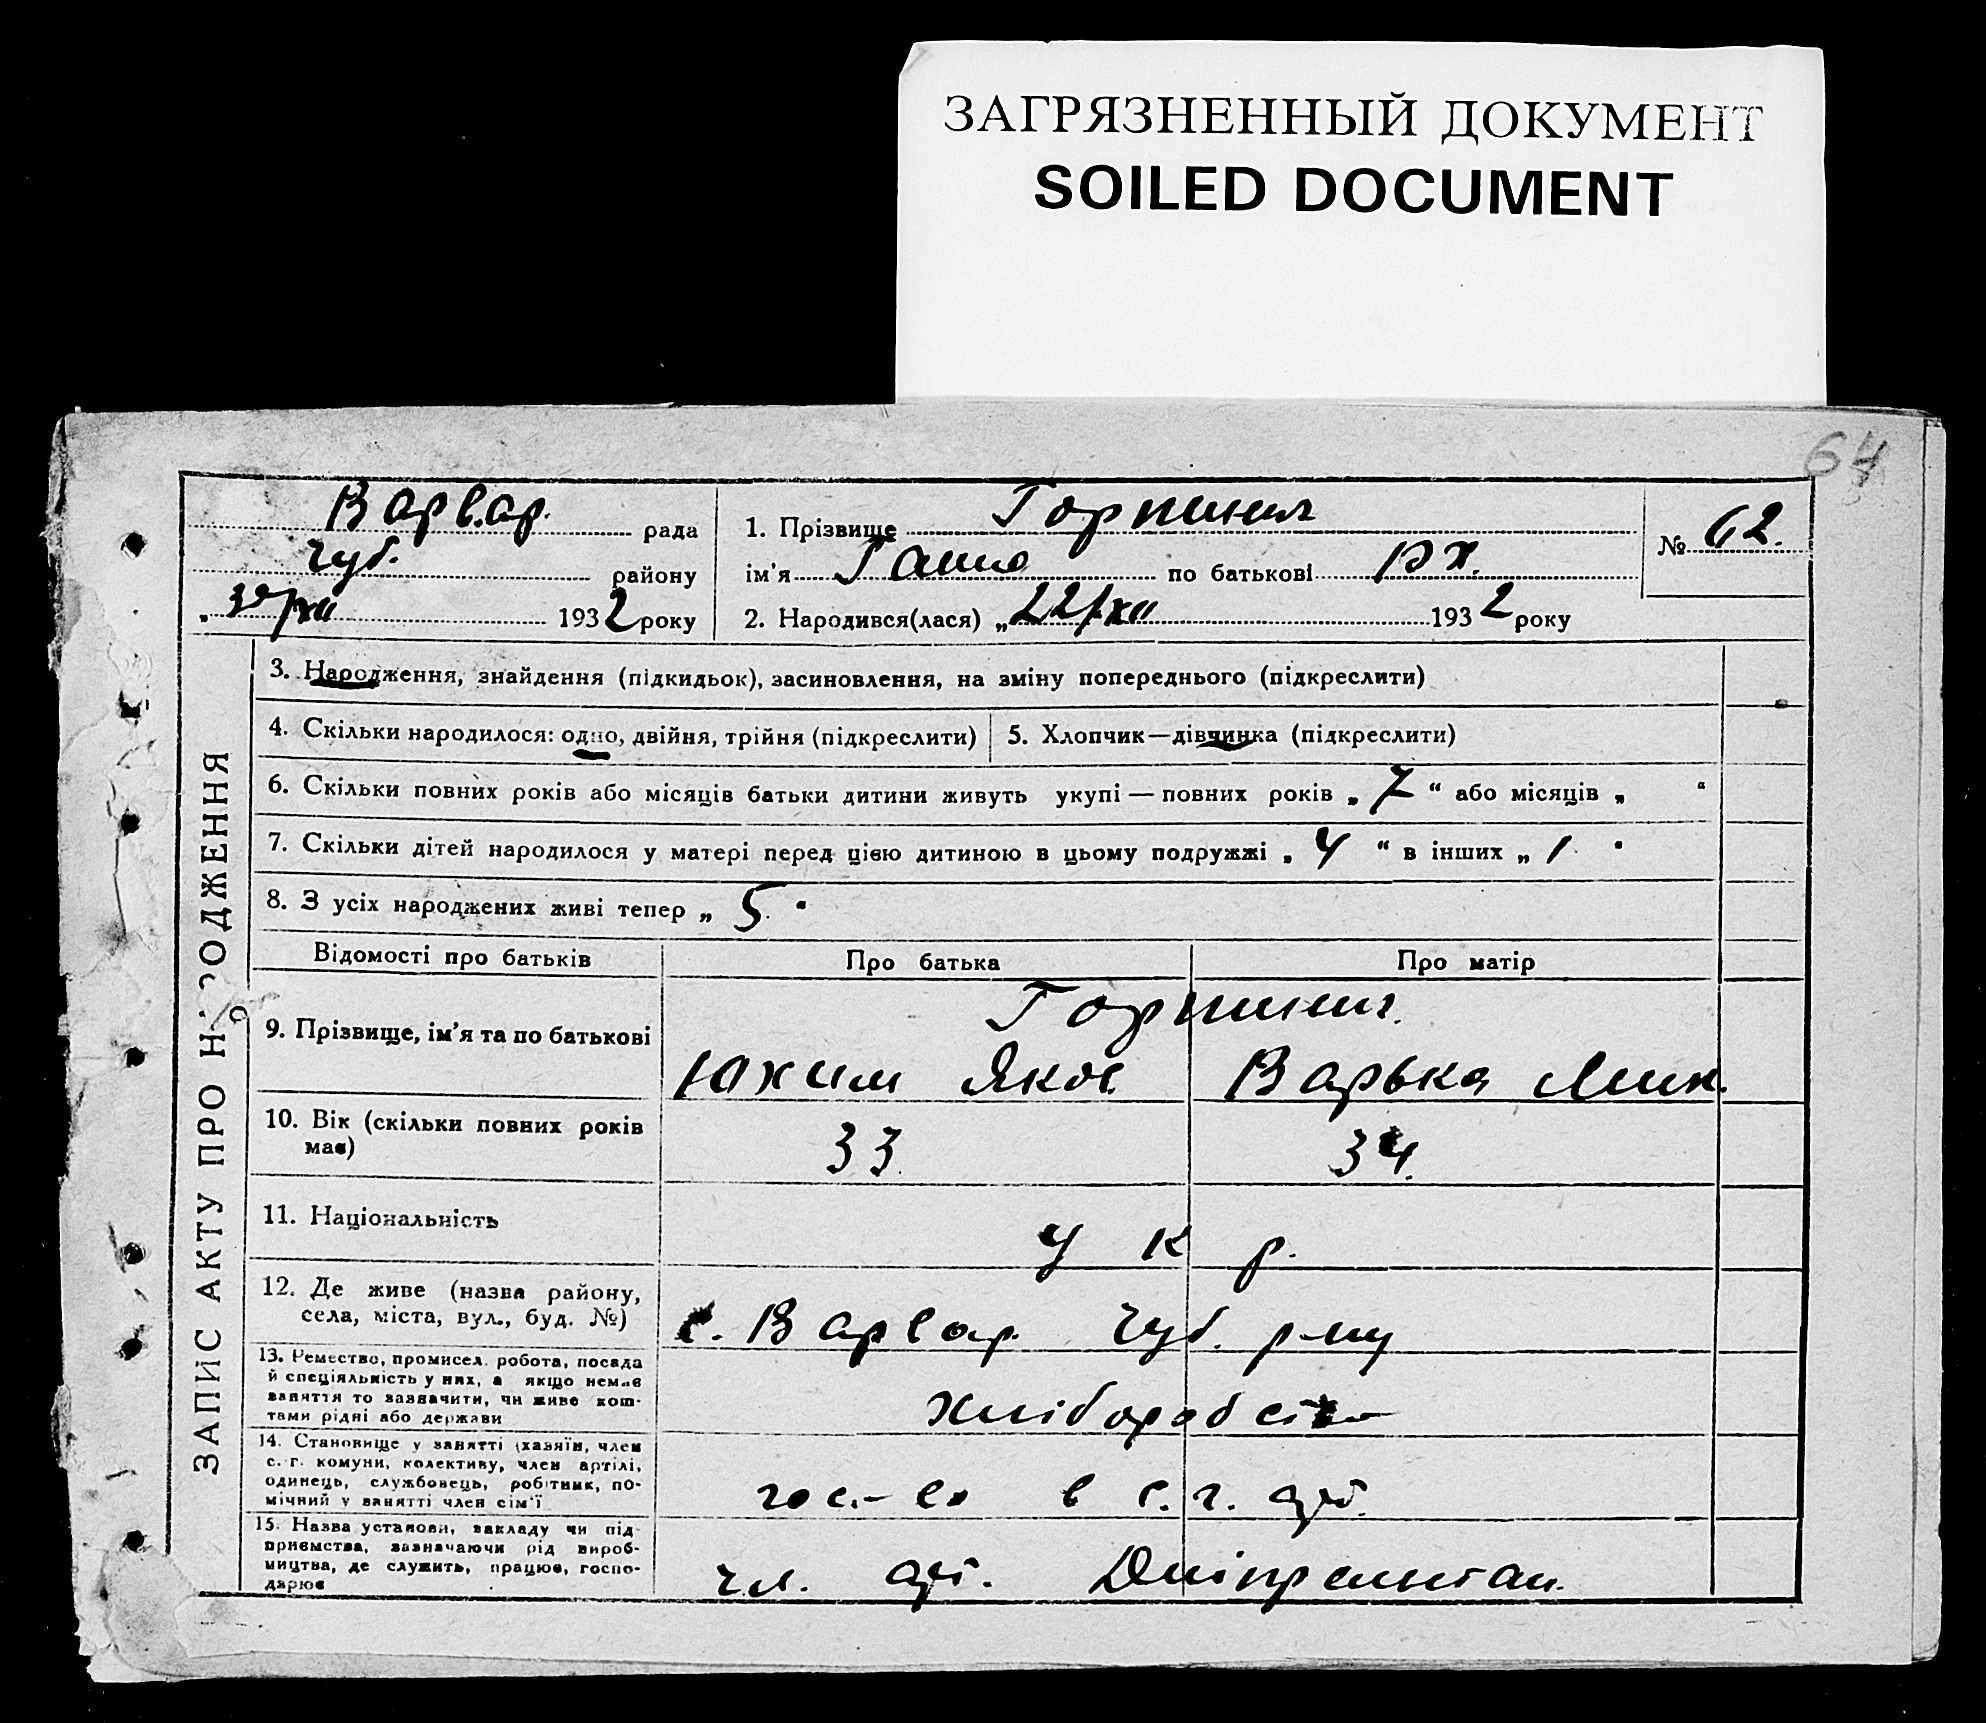 ЗАГРЯЗНЕННЫЙ ДОКУМЕНТ
SOILED DOCUMENT
64
Варвар. рада
Чуб. району
„30/XII 1932 року
1. Прізвище Горпинич
ім'я Ганна по батькові Юх.
2. Народився(лася) „22/XII 1932 року
№ 62.
ЗАПИС АКТУ ПРО НАРОДЖЕННЯ
3. Народження, знайдення (підкидьок), засиновлення, на зміну попереднього (підкреслити)
4. Скільки народилося: одно, двійня, трійня (підкреслити)
5. Хлопчик—дівчинка (підкреслити)
6. Скільки повних років або місяців батьки дитини живуть укупі — повних років „ 7 “ або місяців „ “
7. Скільки дітей народилося у матері перед цією дитиною в цьому подружжі „ 4 “ в інших „ 1 “
8. З усіх народжених живі тепер „ 5. “
Відомості про батьків
Про батька
Про матір
9. Прізвище, ім'я та по батькові
Горпинич.
Юхим Яков
Варька Мик.
10. Вік (скільки повних років
має)
33.
34.
11. Національність
Укр.
12. Де живе (назва району,
села, міста, вул., буд. №)
с. Варвар. Чуб. р-ну
13. Ремество, промисел. робота, посада
й спеціяльність у них, а якщо немає
заняття то зазначити, чи живе кош-
тами рідні або держави
Хліборобство
14. Становище у занятті (хазяїн, член
с.-г. комуни, колективу, член артілі,
одинець, службовець, робітник, по-
мічний у занятті член сім'ї
гос.- в с.г. арт.
15. Назва установи, закладу чи під-
приємства, зазначаючи рід вироб-
ництва, де служить, працює, госпо-
дарює
чл. арт.